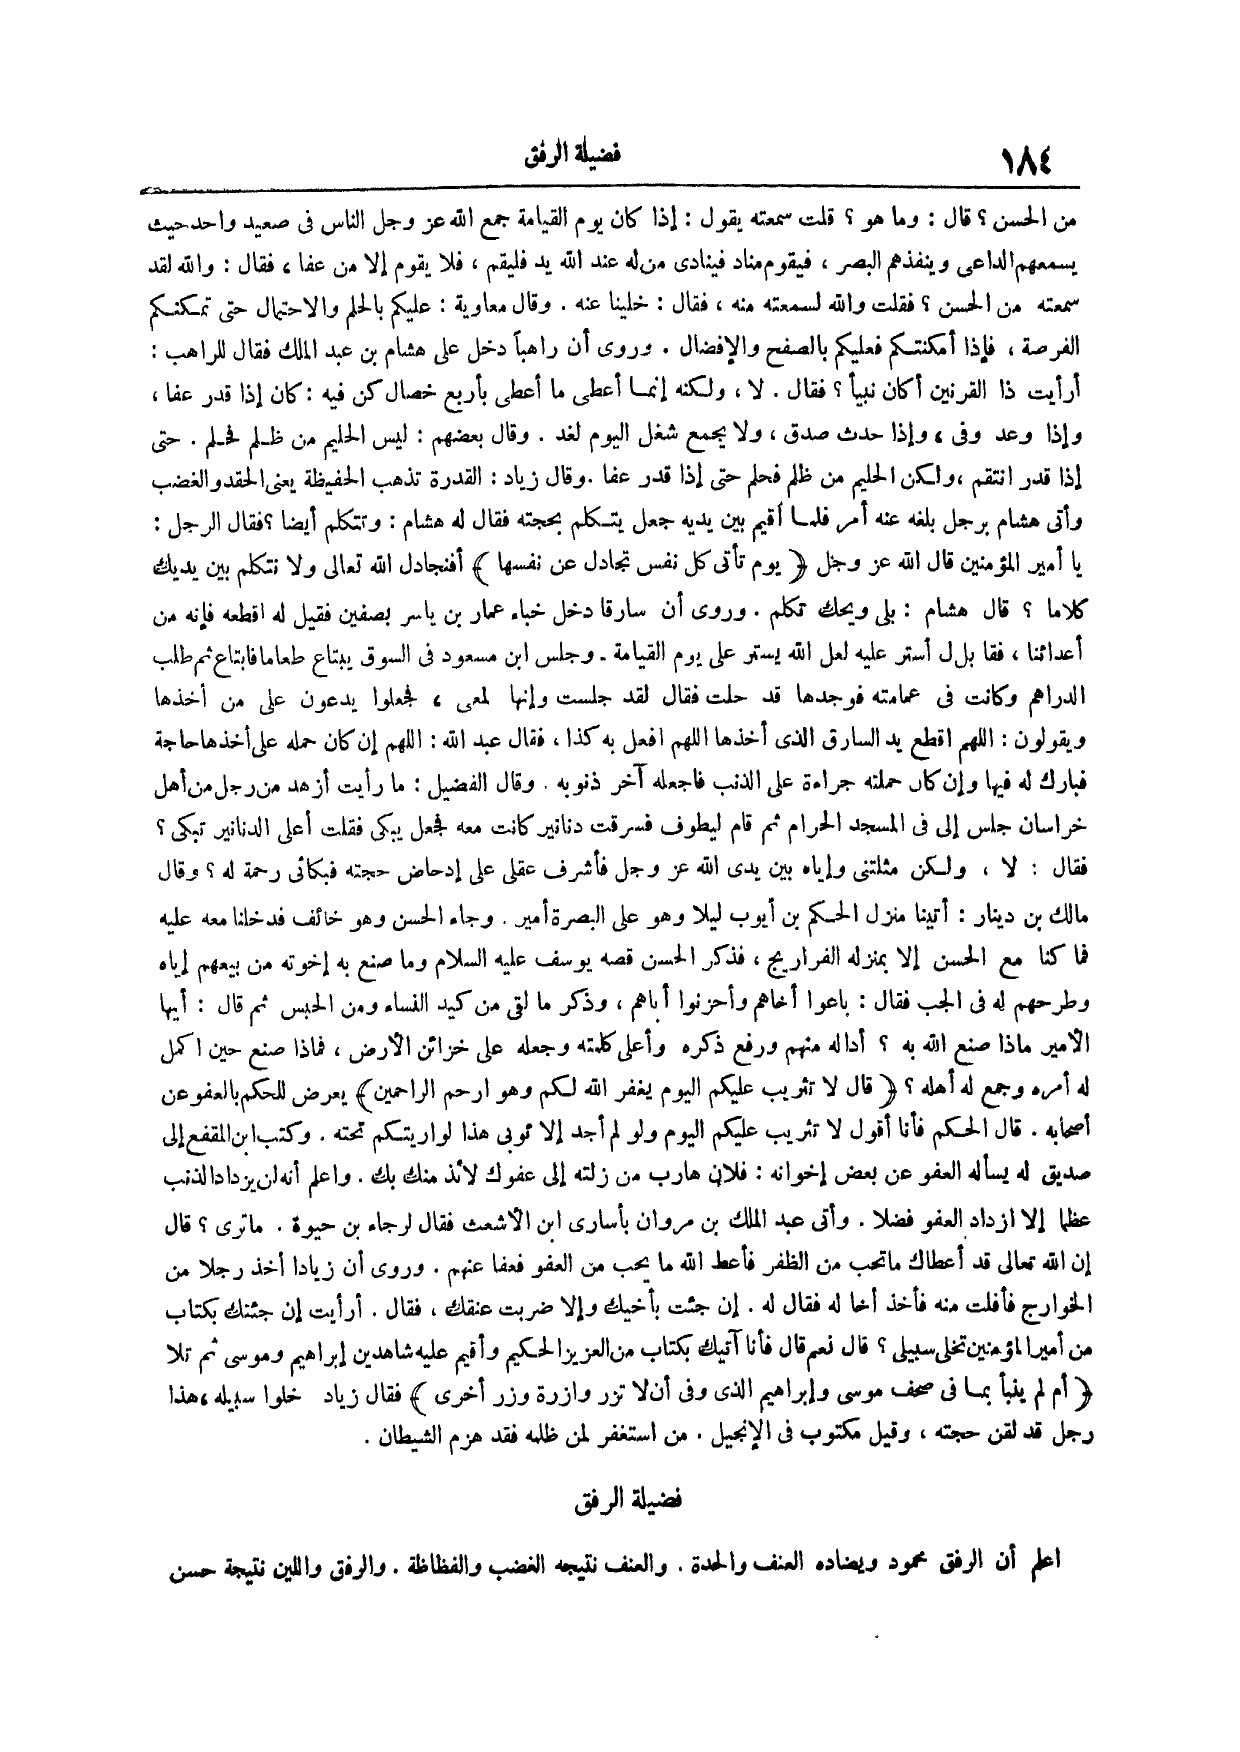 ١٨٤
فضيلة الرفق
من الحسن ؟ قال : وما هو ؟ قلت سمعته يقول : إذا كان يوم القيامة جمع الله عز وجل الناس فى صعيد واحد حيث
يسمعهم الداعى وينفذهم البصر ، فيقوم مناد فينادى من له عند الله يد فليقم ، فلا يقوم إلا من عفا ، فقال : والله لقد
سمعته من الحسن ؟ فقلت والله لسمعته منه ، فقال : خلينا عنه . وقال معاوية : عليكم بالحلم والاحتمال حتى تمكنكم
الفرصة ، فإذا أمكنتكم فعليكم بالصفح والإفضال . وروى أن راهباً دخل على هشام بن عبد الملك فقال للراهب :
أرأيت ذا القرنين أكان نبياً ؟ فقال . لا ، ولكنه إنما أعطى ما أعطى بأربع خصال كن فيه : كان إذا قدر عفا ،
وإذا وعد وفى ، وإذا حدث صدق ، ولا يجمع شغل اليوم لغد . وقال بعضهم : ليس الحليم من ظلم فحلم . حتى
إذا قدر انتقم ، ولكن الحليم من ظلم فحلم حتى إذا قدر عفا . وقال زياد : القدرة تذهب الحفيظة يعنى الحقد والغضب
وأتى هشام برجل بلغه عنه أمر فلما أقيم بين يديه جعل يتكلم بحجته فقال له هشام : وتتكلم أيضا ؟ فقال الرجل :
يا أمير المؤمنين قال الله عز وجل ﴿ يوم تأتى كل نفس تجادل عن نفسها ﴾ أفنجادل الله تعالى ولا نتكلم بين يديك
كلاما ؟ قال هشام : بلى ويحك تكلم . وروى أن سارقا دخل خباء عمار بن ياسر بصفين فقيل له اقطعه فإنه من
أعدائنا ، فقا بل ل أستر عليه لعل الله يستر على يوم القيامة . وجلس ابن مسعود فى السوق يبتاع طعاما فابتاع ثم طلب
الدراهم وكانت فى عمامته فوجدها قد حلت فقال لقد جلست وإنها لمعى ، فجعلوا يدعون على من أخذها
ويقولون : اللهم اقطع يد السارق الذى أخذها اللهم افعل به كذا ، فقال عبد الله : اللهم إن كان حمله على أخذها حاجة
فبارك له فيها وإن كان حملته جراءة على الذنب فاجعله آخر ذنوبه . وقال الفضيل : ما رأيت أزهد من رجل من أهل
خراسان جلس إلى فى المسجد الحرام ثم قام ليطوف فسرقت دنانير كانت معه فجعل يبكى فقلت أعلى الدنانير تبكى ؟
فقال : لا ، ولكن مثلتنى وإياه بين يدى الله عز وجل فأشرف عقلى على إدحاض حجته فبكائى رحمة له ؟ وقال
مالك بن دينار : أتينا منزل الحكم بن أيوب ليلا وهو على البصرة أمير . وجاء الحسن وهو خائف فدخلنا معه عليه
فما كنا مع الحسن إلا بمنزله الفراريج ، فذكر الحسن قصه يوسف عليه السلام وما صنع به إخوته من بيعهم إياه
وطرحهم له فى الجب فقال : باعوا أخاهم وأحزنوا أباهم ، وذكر ما لقى من كيد النساء ومن الحبس ثم قال : أيها
الأمير ماذا صنع الله به ؟ أداله منهم ورفع ذكره وأعلى كلمته وجعله على خزائن الأرض ، فماذا صنع حين اكمل
له أمره وجمع له أهله ؟ ﴿ قال لا تثريب عليكم اليوم يغفر الله لكم وهو ارحم الراحمين ﴾ يعرض للحكم بالعفو عن
أصحابه . قال الحكم فأنا أقول لا تثريب عليكم اليوم ولو لم أجد إلا ثوبى هذا لواريتكم تحته . وكتب ابن المقفع إلى
صديق له يسأله العفو عن بعض إخوانه : فلان هارب من زلته إلى عفوك لائذ منك بك . واعلم أنه لن يزداد الذنب
عظما إلا ازداد العفو فضلا . وأتى عبد الملك بن مروان بأسارى ابن الأشعث فقال لرجاء بن حيوة . ماترى ؟ قال
إن الله تعالى قد أعطاك ماتحب من الظفر فأعط الله ما يحب من العفو فعفا عنهم . وروى أن زيادا أخذ رجلا من
الخوارج فأفلت منه فأخذ أخا له فقال له . إن جئت بأخيك وإلا ضربت عنقك ، فقال . أرأيت إن جئتك بكتاب
من أمير المؤمنين تخلى سبيلى ؟ قال نعم قال فأنا آتيك بكتاب من العزيز الحكيم وأقيم عليه شاهدين إبراهيم وموسى ثم تلا
﴿ أم لم ينبأ بما فى صحف موسى وإبراهيم الذى وفى أن لا تزر وازرة وزر أخرى ﴾ فقال زياد خلوا سبيله ، هذا
رجل قد لقن حجته ، وقيل مكتوب فى الإنجيل . من استغفر لمن ظلمه فقد هزم الشيطان .
فضيلة الرفق
اعلم أن الرفق محمود ويضاده العنف والحدة . والعنف نتيجه الغضب والفظاظة . والرفق واللين نتيجة حسن